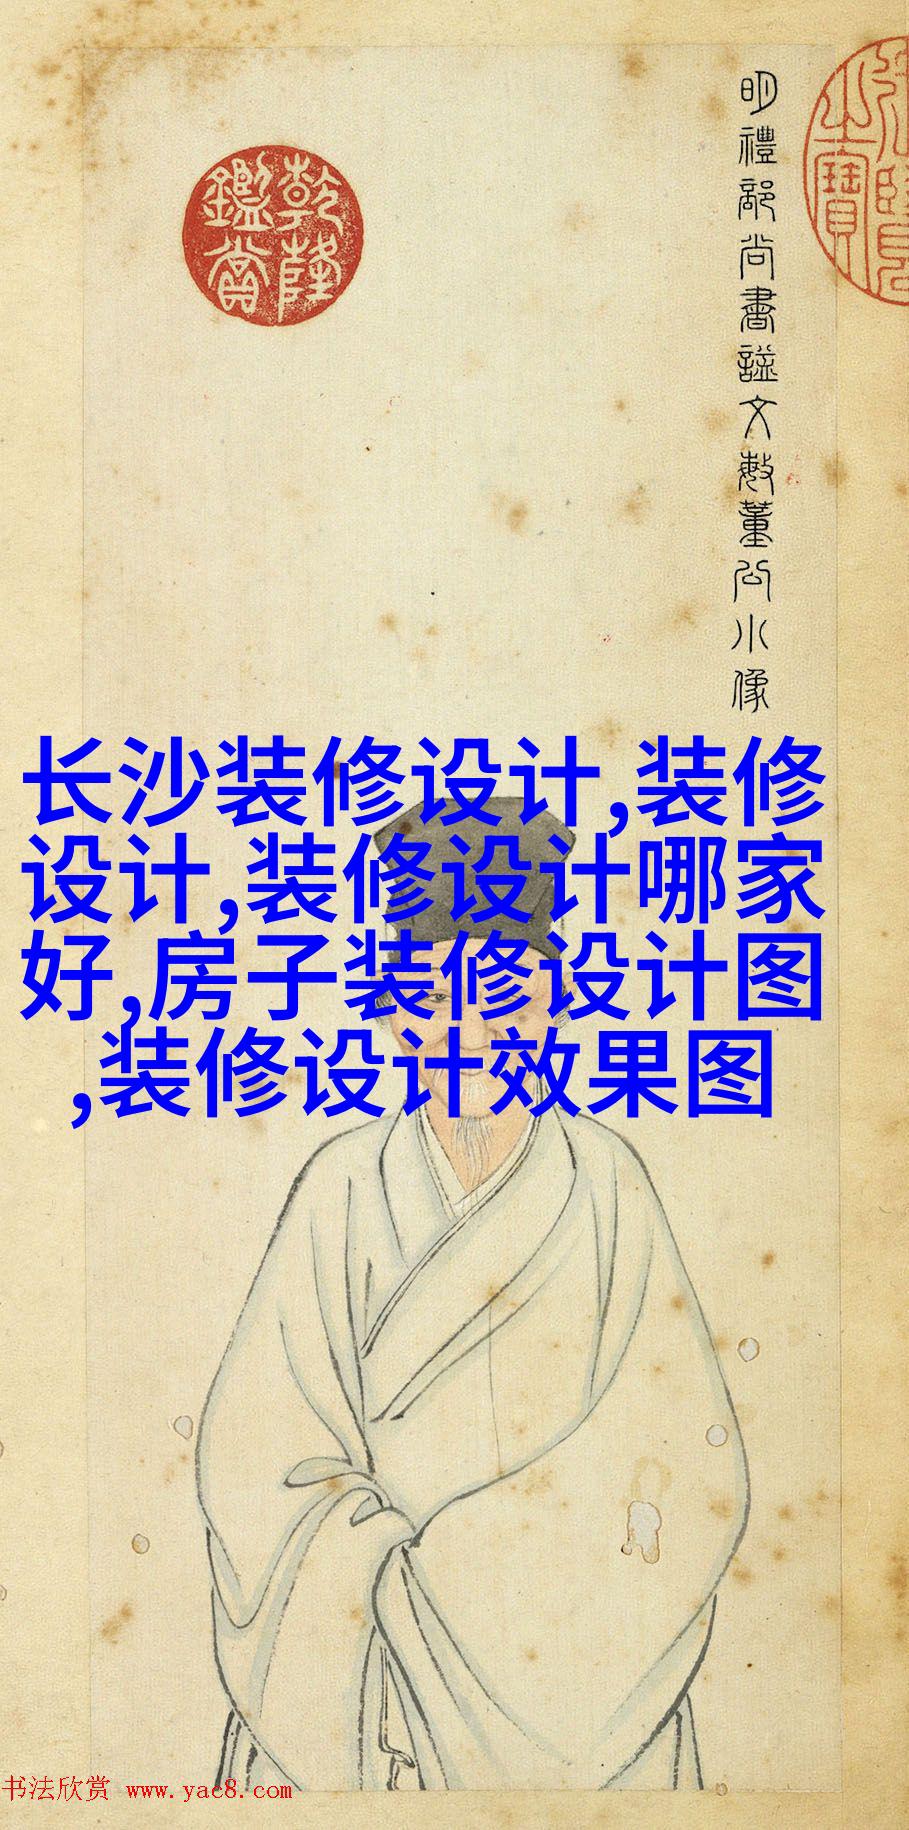 明禮部尚書謚文敏董公小像
乾隆
鑑賞
長沙装修设计,装修
设计,装修设计哪家
好,房子装修设计图
,装修设计效果图
书法欣赏 www.yac8.com